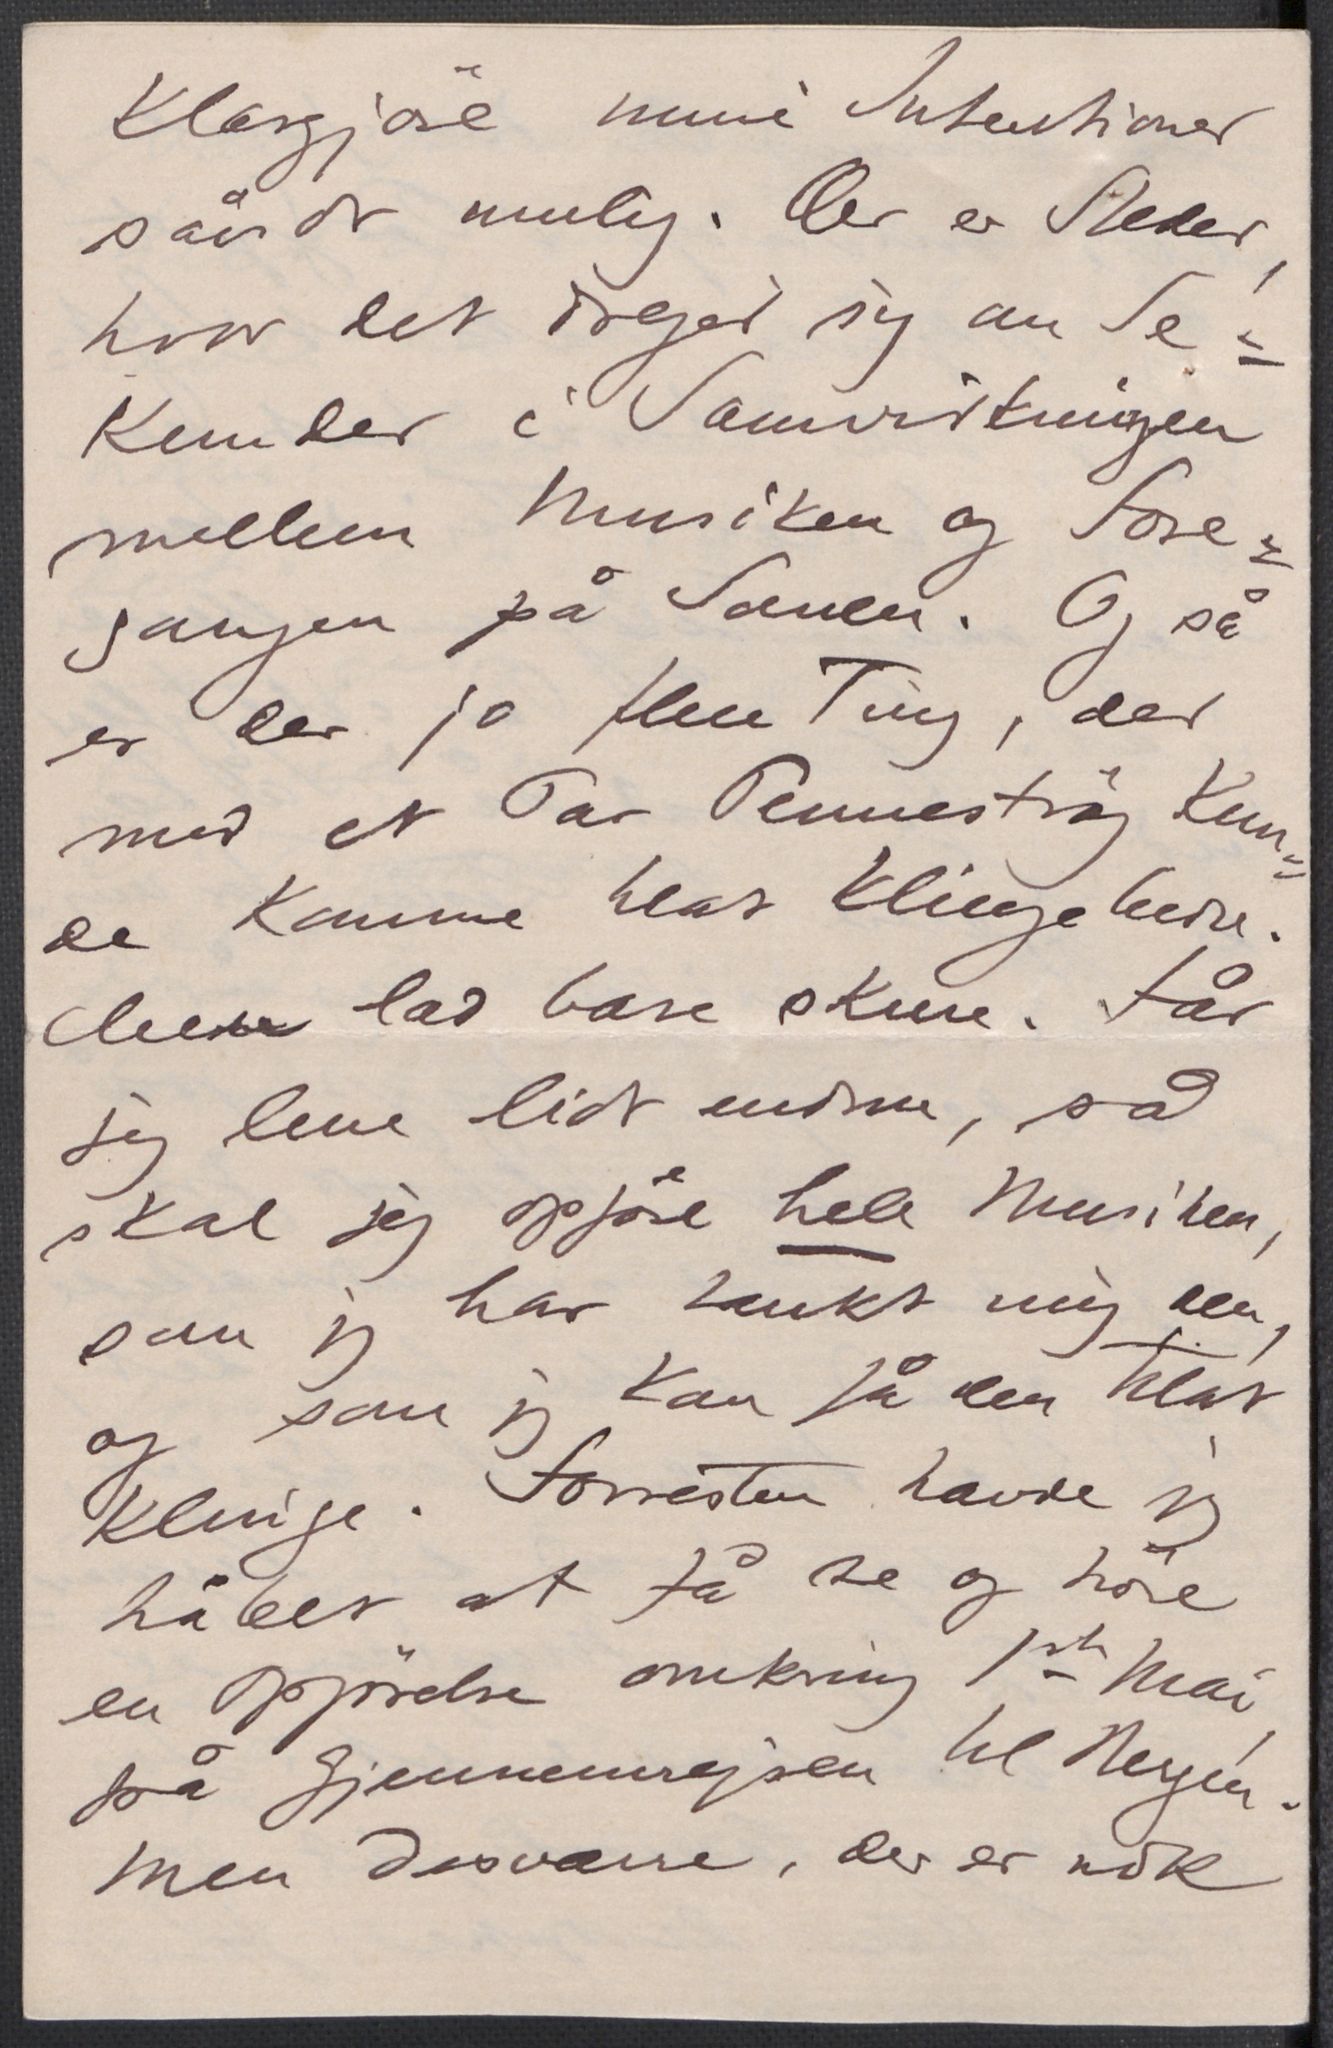 Klargjöre mine Intentioner
såvidt mulig. Der er Steder,
hvor det drejer sig om Se-
kunder i Samvirkningen
mellem Musiken og Fore-
gangen på Scenen. Og så
er der jo flere Ting, der
med et Par Pennestrøg kun-
de komme til at klinge bedre.
Men lad bare skure. Får
jeg leve lidt endnu, så
skal jeg opføre hele Musiken,
som jeg har tænkt mig den,
og som jeg kan få den til at
klinge. Forresten havde jeg
håbet at få se og höre
en Opførelse omkring 1ste Mai,
på Gjennemrejsen til Bergen.
Men desværre, der er nok